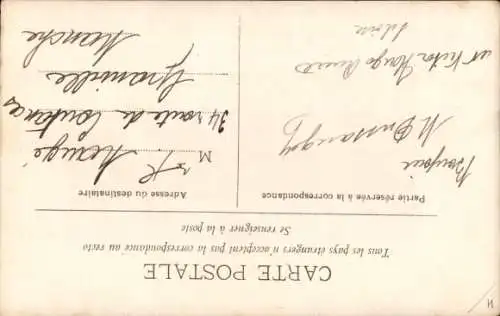 CARTE POSTALE
Tous les pays étrangers n'acceptent pas la correspondance au recto
Se renseigner à la poste
Partie réservée à la correspondance
Bonjour
Victor Hugo
Adresse du destinataire
M
34 route de Coutances
Granville
Manche